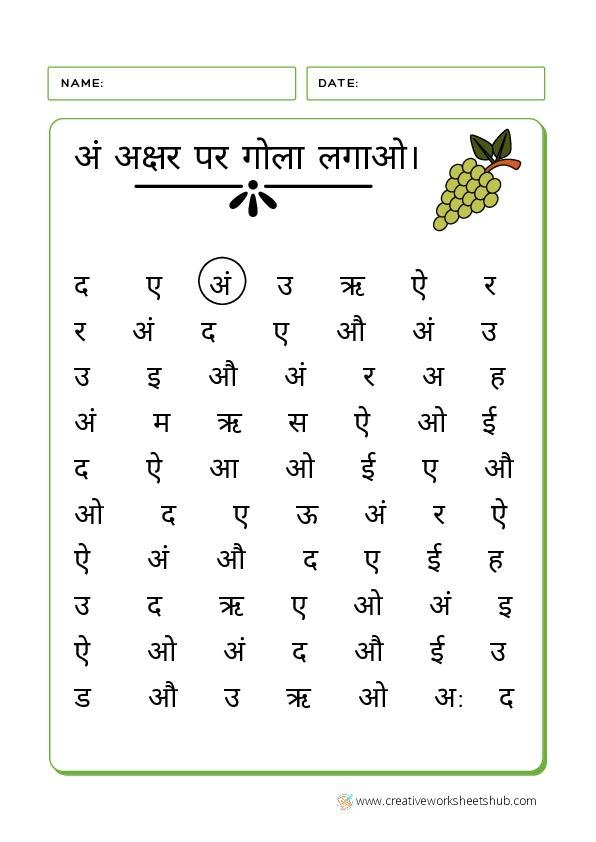 NAME: DATE:
अं अक्षर पर गोला लगाओ।
द ए अं उ ऋ ऐ र
र अं द ए औ अं उ
उ इ औ अं र अ ह
अं म ऋ स ऐ ओ ई
द ऐ आ ओ ई ए औ
ओ द ए ऊ अं र ऐ
ऐ अं औ द ए ई ह
उ द ऋ ए ओ अं इ
ऐ ओ अं द औ ई उ
ड औ उ ऋ ओ अ: द
www.creativeworksheetshub.com